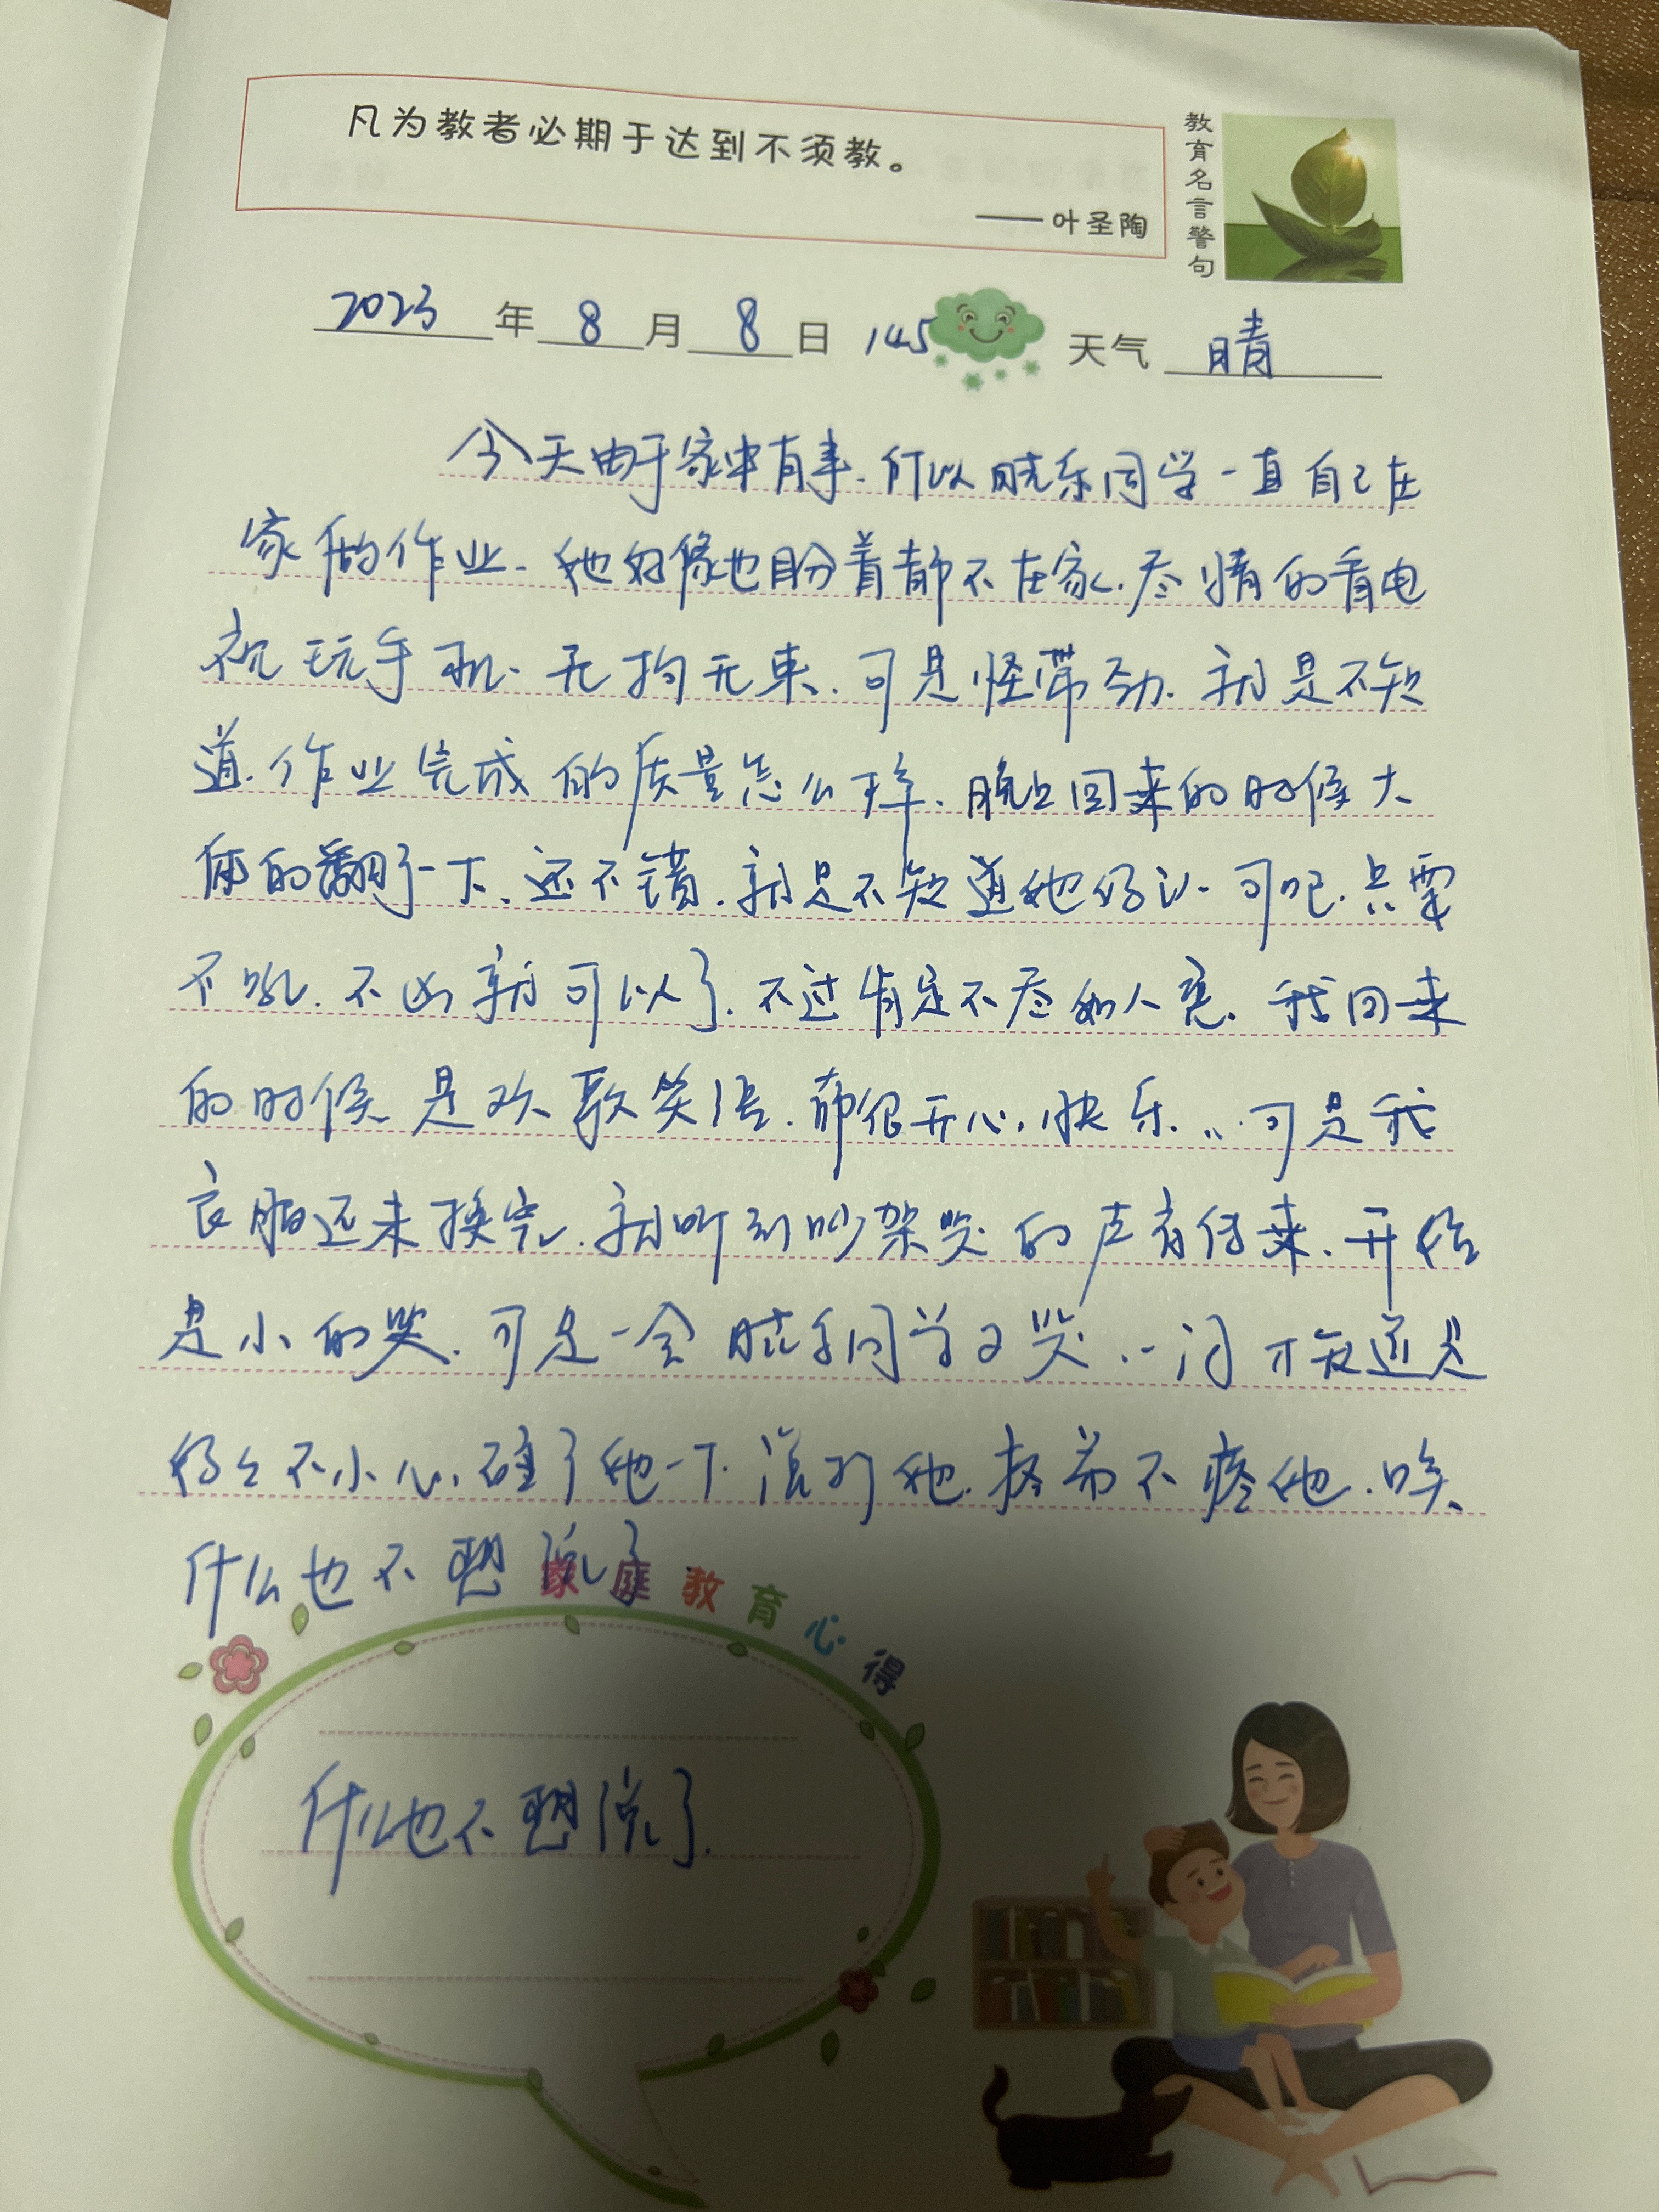 凡为教者必期于达到不须教。
——叶圣陶
教育名言警句
2023年8月8日 145 天气 晴
今天由于家中有事.所以晓乐同学一直自己在
家做的作业.她好像也盼着都不在家.尽情的看电
视玩手机.无拘无束.可是怪带劲.就是不知
道.作业完成的质量怎么样.晚上回来的时候大
体的翻了一下、还不错.就是不知道她 可吧.只要
不吼.不凶就可以了.不过肯定不尽如人意.我回来
的时候是欢歌笑语.都很开心.快乐...可是我
衣服还未换完.就听到吵架哭的声音传来.开始
是小的哭.可是一会晓乐同学又哭.一问才知道是
不小心.碰了她一下.说 她. 不疼她.唉、
什么也不想说了
家庭教育心得
什么也不想说了.